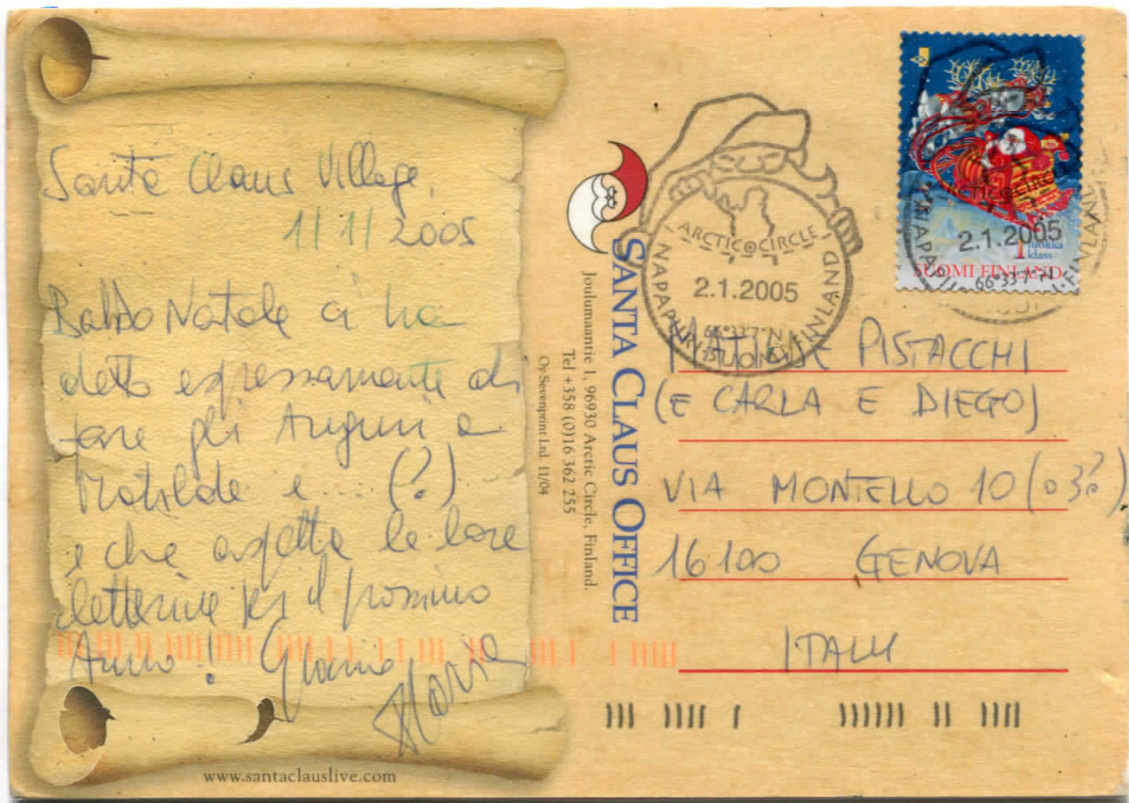 Santa Claus Village,
1/1/2005
Babbo Natale ci ha
detto espressamente di
fare gli Auguri a
Matilde e ... (?)
e che aspetta le loro
letterine per il prossimo
Anno!
www.santaclauslive.com
SANTA CLAUS OFFICE
Joulumaantie 1, 96930 Arctic Circle, Finland.
Tel +358 (0)16 362 255
Oy Sevenprint Ltd. 11/04
ARCTIC CIRCLE
2.1.2005
66°33'7"N
NAPAPIIRI SUOMI FINLAND
ARCTIC CIRCLE
2.1.2005
1 luokka
klass
SUOMI FINLAND
66°33'7"N
PISTACCHI
(E CARLA E DIEGO)
VIA MONTELLO 10 (o 3?)
16100 GENOVA
ITALY